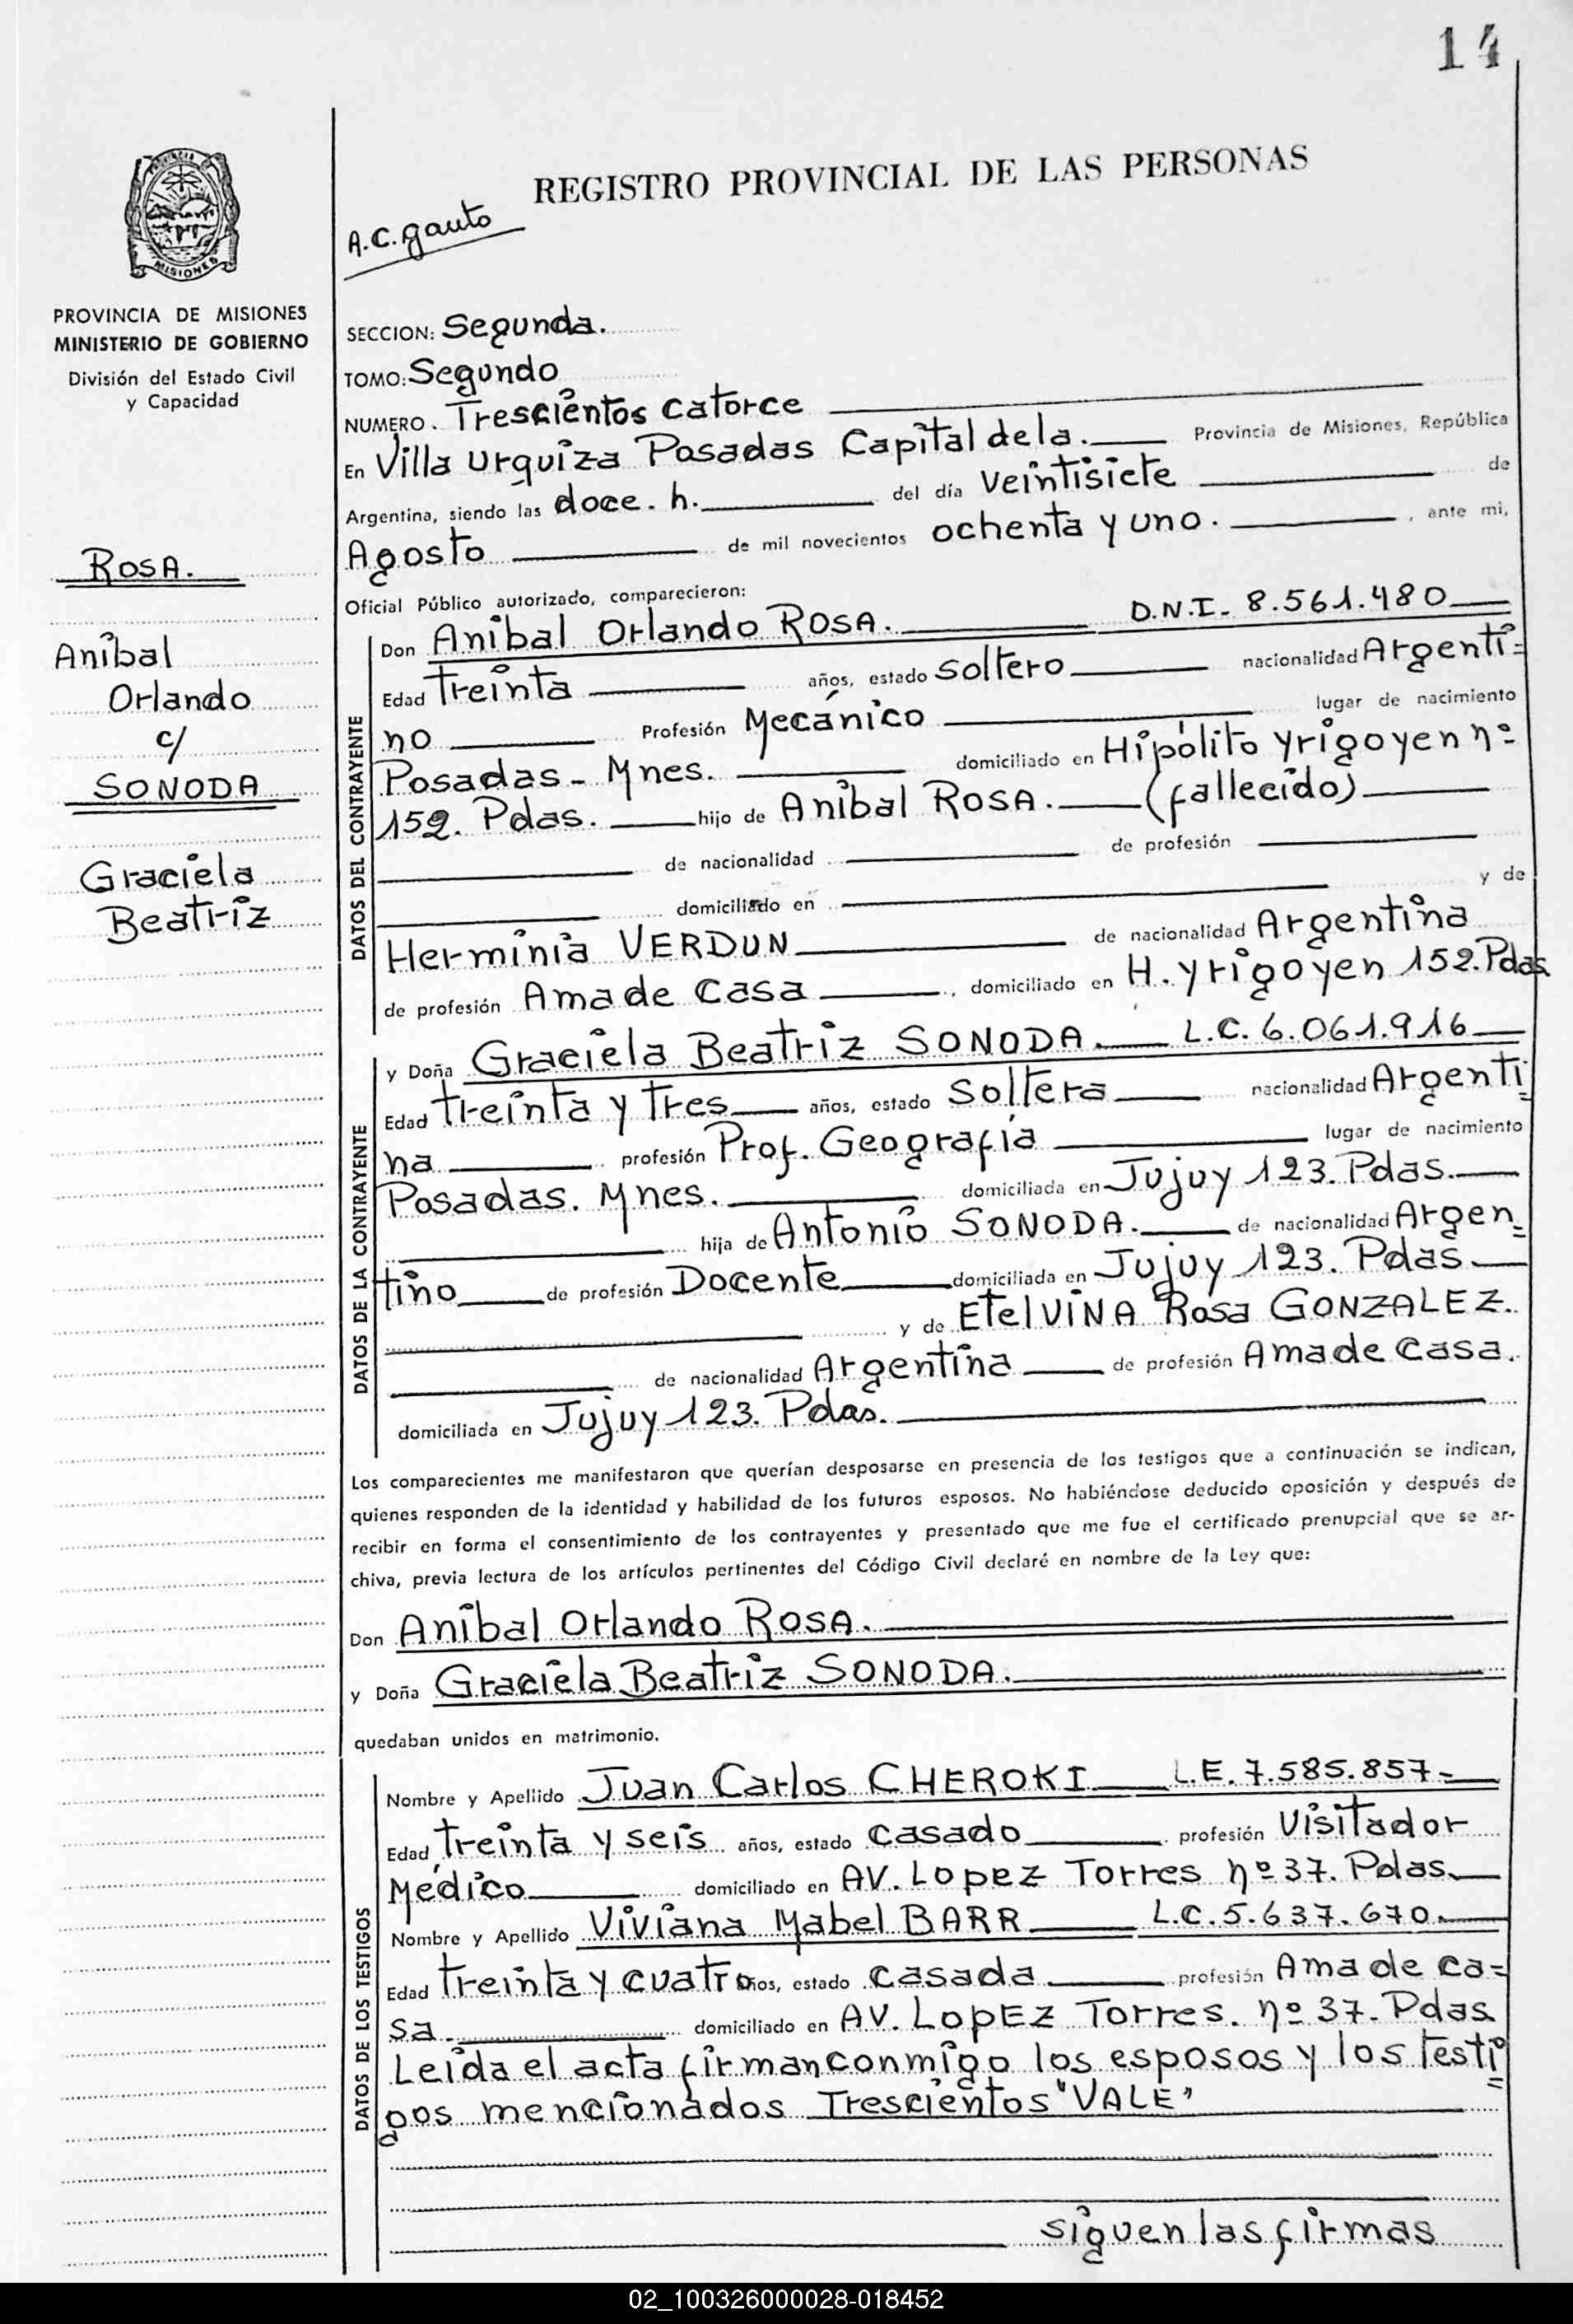 14
PROVINCIA
MISIONES
PROVINCIA DE MISIONES
MINISTERIO DE GOBIERNO
División del Estado Civil
y Capacidad
ROSA.
Aníbal
Orlando
c/
SONODA
Graciela
Beatriz
REGISTRO PROVINCIAL DE LAS PERSONAS
A.C. Gauto
SECCION: Segunda.
TOMO: Segundo
NUMERO. Trescientos catorce
En Villa Urquiza Posadas Capital de la. Provincia de Misiones, República
Argentina, siendo las doce. h. del día veintisiete de
Agosto de mil novecientos ochenta y uno. , ante mi,
Oficial Público autorizado, comparecieron:
DATOS DEL CONTRAYENTE
Don Aníbal Orlando ROSA. D.N.I. 8.561.480
Edad Treinta años, estado soltero nacionalidad Argenti=
no Profesión Mecánico lugar de nacimiento
Posadas - Mnes. domiciliado en Hipólito Yrigoyen nº
152. Pdas. hijo de Aníbal ROSA. (fallecido)
de nacionalidad de profesión
domiciliado en y de
Herminia VERDUN de nacionalidad Argentina
de profesión Ama de Casa , domiciliado en H. Yrigoyen 152. Pdas
DATOS DE LA CONTRAYENTE
y Doña Graciela Beatriz SONODA. L.C. 6.061.916
Edad treinta y tres años, estado Soltera nacionalidad Argenti=
na profesión Prof. Geografía lugar de nacimiento
Posadas. Mnes. domiciliada en Jujuy 123. Pdas.
hija de Antonio SONODA. de nacionalidad Argen=
tino de profesión Docente domiciliada en Jujuy 123. Pdas.
y de EtelVINA Rosa GONZALEZ.
de nacionalidad Argentina de profesión Ama de Casa.
domiciliada en Jujuy 123. Pdas.
Los comparecientes me manifestaron que querían desposarse en presencia de los testigos que a continuación se indican,
quienes responden de la identidad y habilidad de los futuros esposos. No habiéndose deducido oposición y después de
recibir en forma el consentimiento de los contrayentes y presentado que me fue el certificado prenupcial que se ar-
chiva, previa lectura de los artículos pertinentes del Código Civil declaré en nombre de la Ley que:
Don Aníbal Orlando ROSA.
y Doña Graciela Beatriz SONODA.
quedaban unidos en matrimonio.
DATOS DE LOS TESTIGOS
Nombre y Apellido Juan Carlos CHEROKI L.E. 7.585.857-
Edad treinta y seis años, estado casado profesión Visitador
Médico domiciliado en AV. Lopez Torres nº 37. Pdas.
Nombre y Apellido Viviana Mabel BARR L.C. 5.637.670.
Edad treinta y cuatro años, estado casada profesión Ama de ca=
sa. domiciliado en AV. LopEZ Torres. nº 37. Pdas
Leída el acta firman conmigo los esposos y los testi=
gos mencionados Trescientos "VALE"
siguen las firmas
02_100326000028-018452